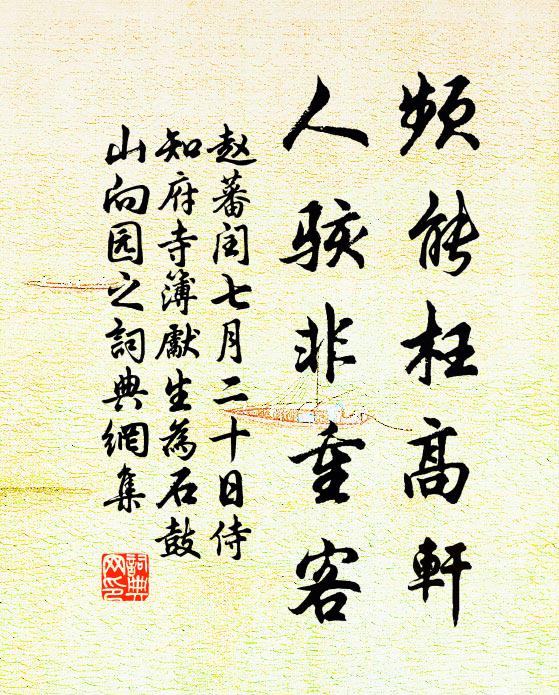 频能枉高軒
人骇非重客
赵蕃闰七月二十日侍
知府寺簿獻生為石鼓
山向园之詞典網集
詞典网印